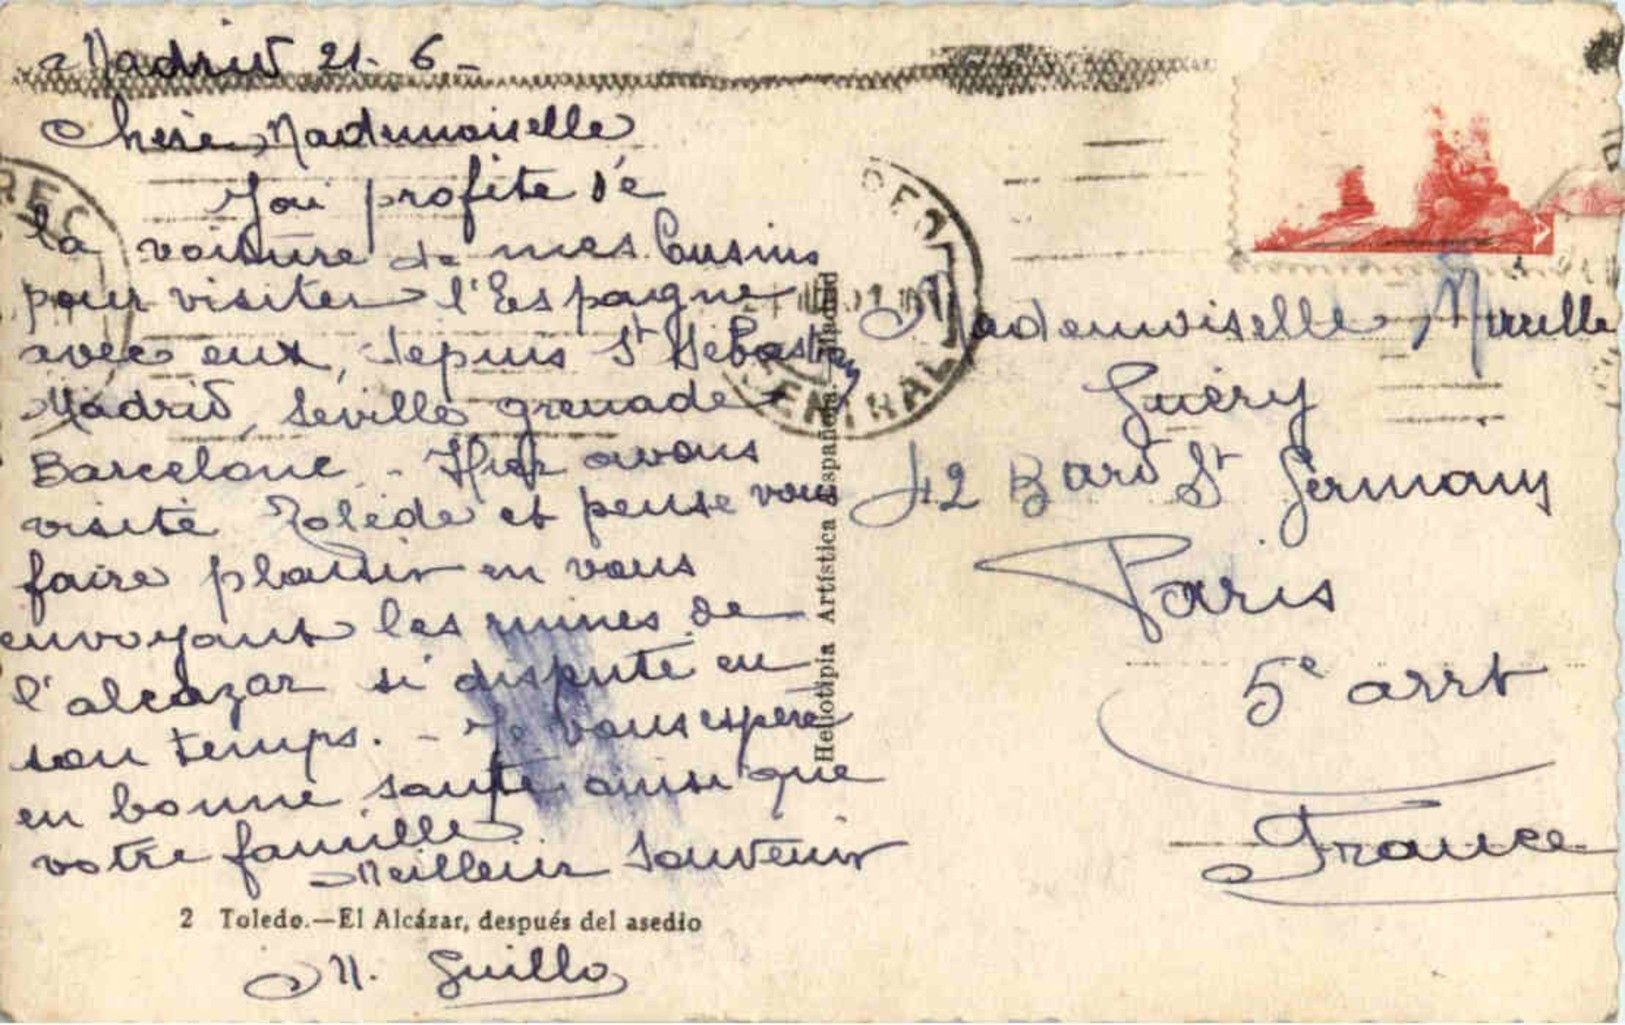 Madrid 21-6-
Chère Mademoiselle
J'ai profité de
la voiture de mes Cousins
pour visiter l'Espagne
avec eux, depuis St Sébastien
Madrid, Séville grenade
Barcelone - Hier avons
visité Tolède et pense vous
faire plaisir en vous
envoyant les ruines de
l'alcazar si disputé en
son temps. - Je vous espère
en bonne santé ainsi que
votre famille
Meilleur Souvenir
2 Toledo.—El Alcázar, después del asedio
M. Guillo
Heliotipia Artística Española - Madrid
CENTRAL
Mademoiselle Mireille
Guéry
42 Bard St Germain
Paris
5e arrt
France